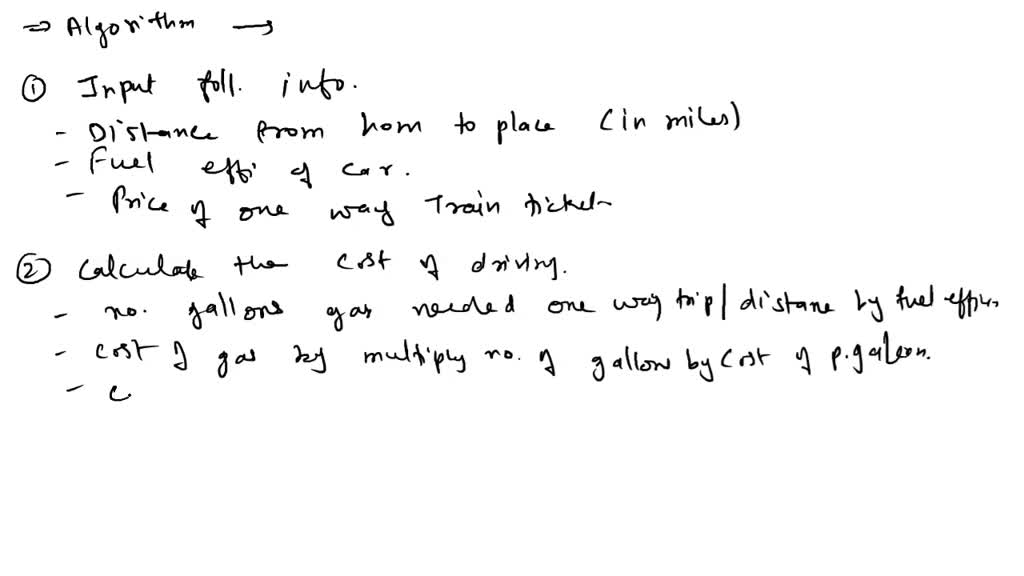 ⇒ Algorithm →
① Input foll. info.
- Distance from hom to place (in miles)
- Fuel effi of car.
- Price of one way Train ticket
② Calculate the cost of driving.
- no. gallons gas needed one way trip / distane by fuel
- cost of gas by multiply no. of gallow by cost of p. gallon.
- c